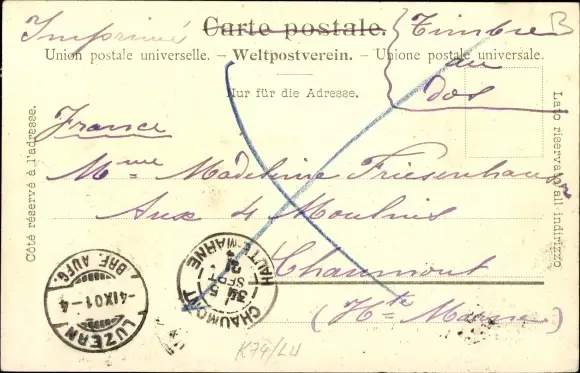 Imprimé
Carte postale.
Timbre
au
dos
B
Union postale universelle. – Weltpostverein. – Unione postale universale.
Nur für die Adresse.
Côté réservé à l'adresse.
Lato riservato all indirizzo
France
Mme Madeleine Friesenhauser
Aux 4 Moulins
Chaumont
(Hte Marne)
LUZERN
-4 IX 01 - 4
BRF. AUFG.
CHAUMONT
HAUTE-MARNE
5
SEPT
K74/LU